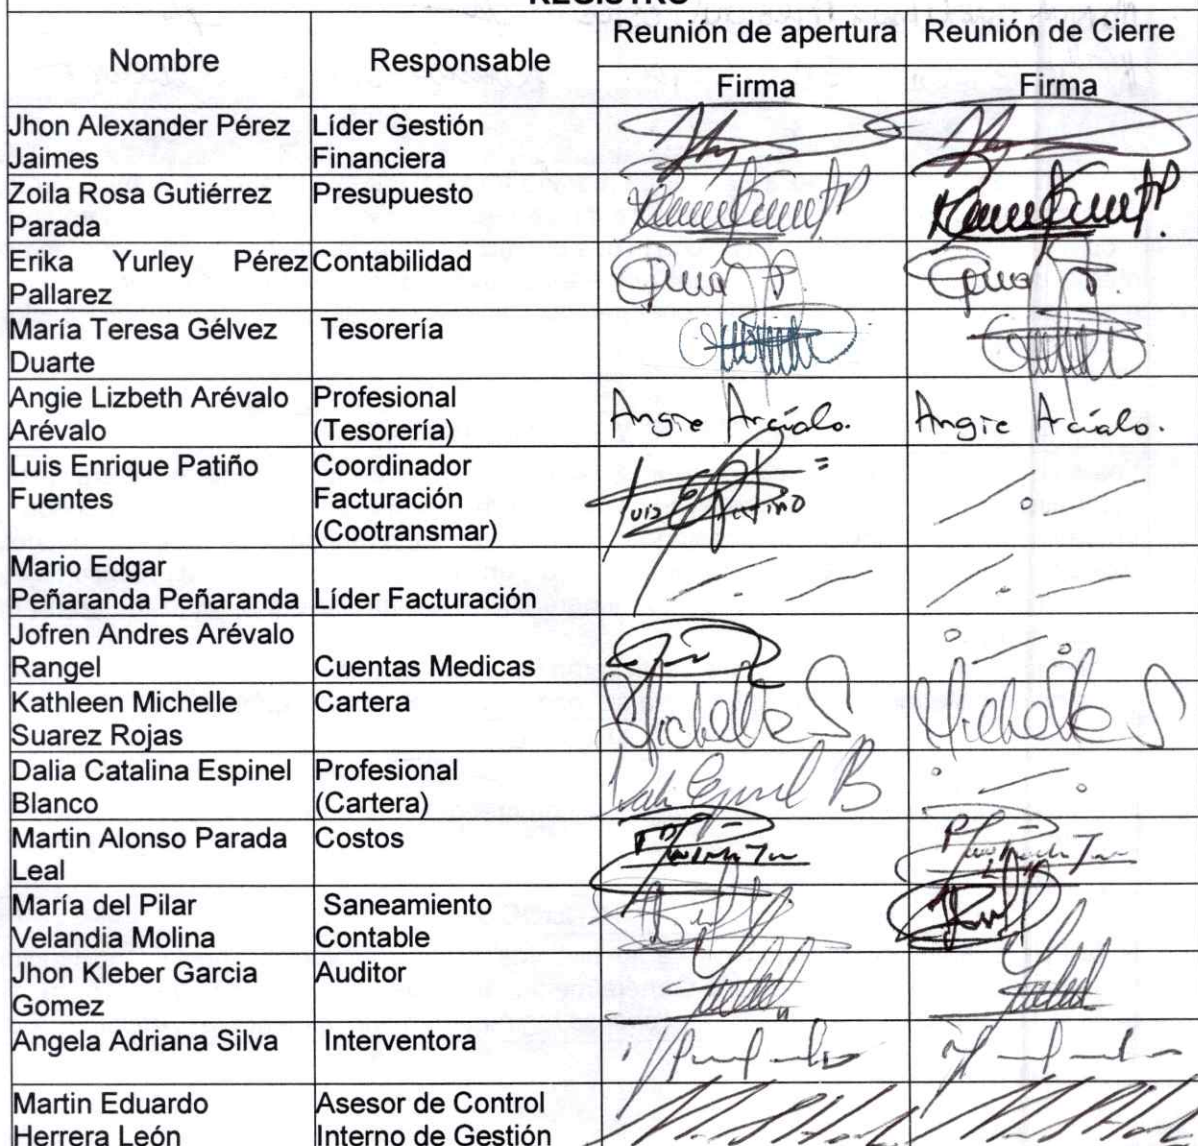 REGISTRO
Nombre
Responsable
Reunión de apertura
Reunión de Cierre
Firma
Firma
Jhon Alexander Pérez
Jaimes
Líder Gestión
Financiera
Zoila Rosa Gutiérrez
Parada
Presupuesto
Erika Yurley Pérez
Pallarez
Contabilidad
María Teresa Gélvez
Duarte
Tesorería
Angie Lizbeth Arévalo
Arévalo
Profesional
(Tesorería)
Angie Arévalo.
Angie Arévalo.
Luis Enrique Patiño
Fuentes
Coordinador
Facturación
(Cootransmar)
Luis Patiño
Mario Edgar
Peñaranda Peñaranda
Líder Facturación
Jofren Andres Arévalo
Rangel
Cuentas Medicas
Kathleen Michelle
Suarez Rojas
Cartera
Michelle S
Michelle S
Dalia Catalina Espinel
Blanco
Profesional
(Cartera)
Martin Alonso Parada
Leal
Costos
María del Pilar
Velandia Molina
Saneamiento
Contable
Jhon Kleber Garcia
Gomez
Auditor
Angela Adriana Silva
Interventora
Martin Eduardo
Herrera León
Asesor de Control
Interno de Gestión